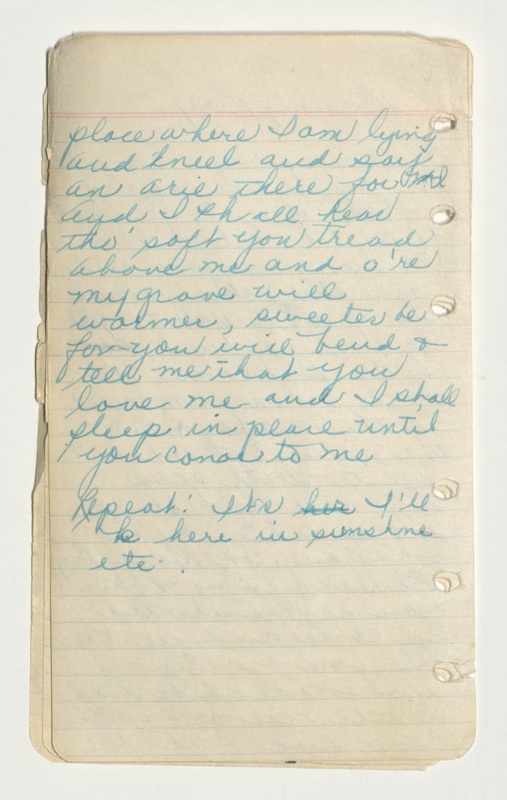 place where I am lying
and kneel and say
an avie there for me
And I shall hear
tho' soft you tread
above me and o're
my grave will
warmer, sweeter be
for you will bend &
tell me that you
love me and I shall
sleep in peace until
you come to me
Repeat: It's her I'll
be here in sunshine
etc.